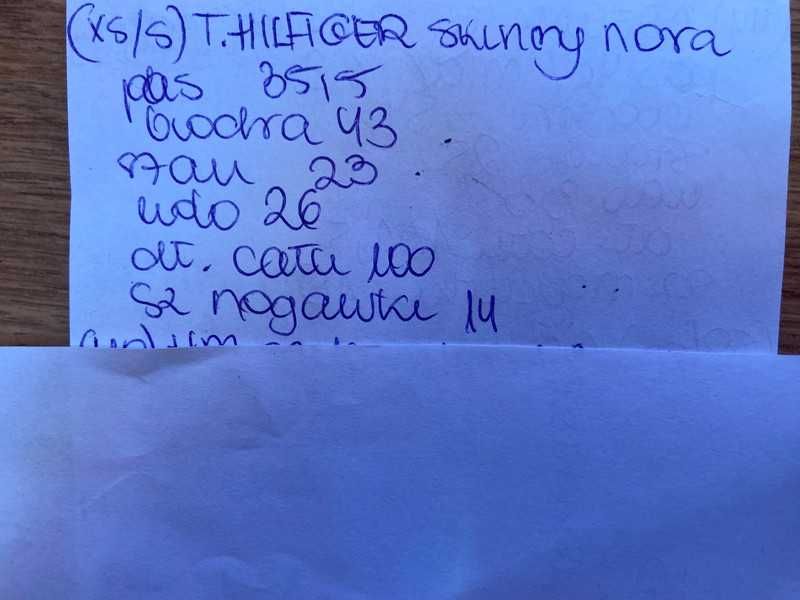 (XS/S) T.HILFIGER skinny nora
pas 35,5
biodra 43
stan 23
udo 26
dł. cała 100
sz nogawki 14